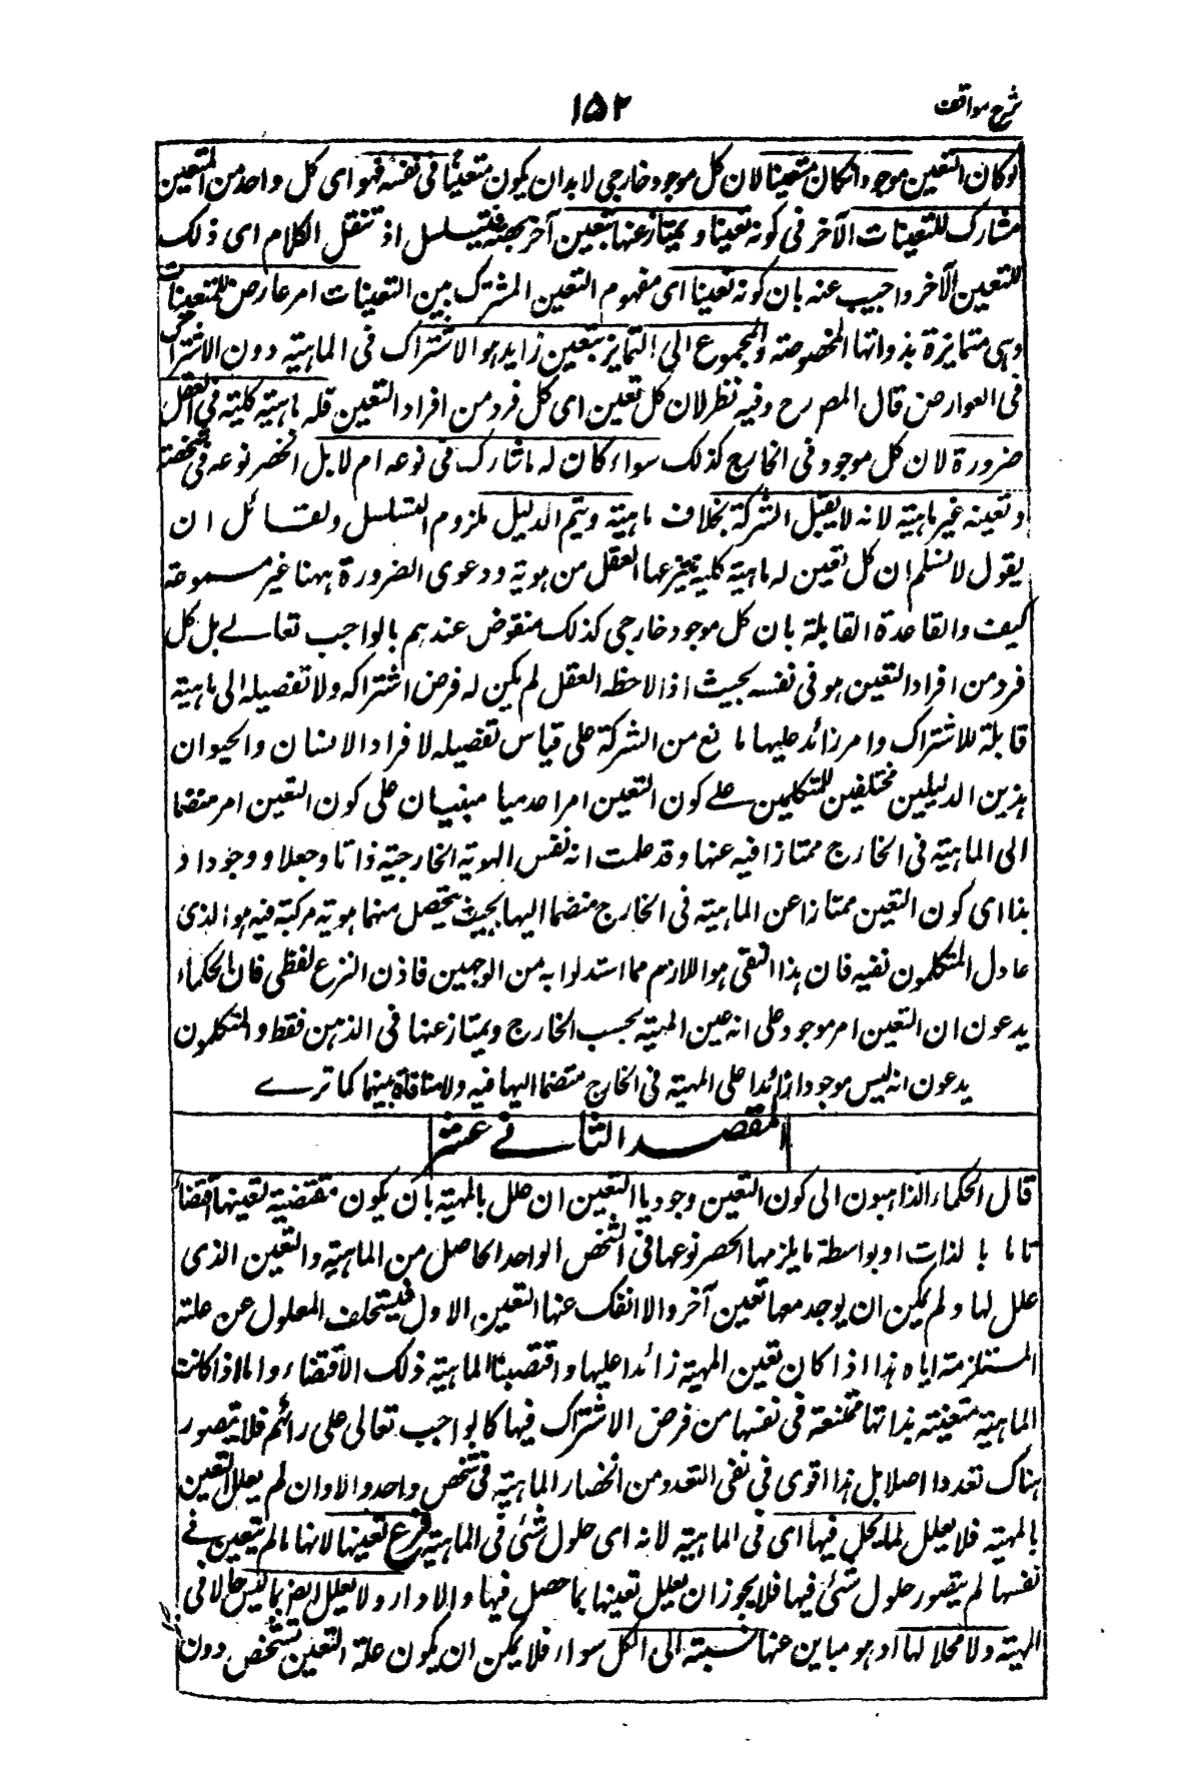 شرح مواقف
١٥٢
لو كان التعين موجودا لكان متعينا لان كل موجود خارجى لا بد ان يكون متعينا فى نفسه فهو اى كل واحد من المتعين
مشارك للتعينات الآخر فى كونه تعينا و يمتاز عنها بتعين آخر يخصه فيتسلسل اذ تنقل الكلام اى ذلك
للتعين الآخر واجيب عنه بان كونه تعينا اى مفهوم التعين المشترك بين التعينات امر عارض للمتعينات
وهى متمايزة بذواتها المخصوصة والمجموع الى التمايز بتعين زايد هو الاشتراك فى الماهية دون الاشتراك
فى العوارض قال المص رح وفيه نظر لان كل تعين اى كل فرد من افراد التعين فله ماهية كلية فى العقل
ضرورة لان كل موجود فى الخارج كذلك سواء كان له مشارك فى نوعه ام لا بل انحصر نوعه فى شخصه
و تعينه غير ماهيته لانه لا يقبل الشركة بخلاف ماهيته ويتم الدليل ملزوم التسلسل ولقائل ان
يقول لا نسلم ان كل تعين له ماهية كلية ينتزعها العقل من هويته و دعوى الضرورة ههنا غير مسموعة
كيف والقاعدة القايلة بان كل موجود خارجى كذلك منقوض عندهم بالواجب تعالے بل كل
فرد من افراد التعين هو فى نفسه بحيث اذا لاحظه العقل لم يكن له فرض اشتراكه ولا تفصيله الى ماهية
قابلة للاشتراك وامر زائد عليها مانع من الشركة على قياس تفصيله لافراد الانسان والحيوان
هذين الدليلين مختلفين للمتكلمين علے كون التعين امرا عدميا مبنيان على كون التعين امر منضما
الى الماهية فى الخارج ممتازا فيه عنها وقد علمت انه نفس الهوية الخارجية ذاتا وجعلا و وجودا و
هذا اى كون التعين ممتازا عن الماهية فى الخارج منضما اليها بحيث يتحصل منهما هوية مركبة فيه هو الذى
حاول المتكلمون نفيه فان هذا النفى هو اللازم مما استدلوا به من الوجهين فاذن النزع لفظى فان الحكماء
يدعون ان التعين امر موجود على انه عين المهية بحسب الخارج ويمتاز عنها فى الذهن فقط و المتكلمون
يدعون انه ليس موجودا زائدا على المهية فى الخارج منضما اليها فيه ولا منافاة بينهما كما ترے
المقصد الثانے عشر
قال الحكماء الذاهبون الى كون التعين وجوديا التعين ان علل بالمهية بان يكون مقتضية لتعينها اقتضاء
تاما بالذات او بواسطة ما يلزمها انحصر نوعها فى الشخص الواحد الحاصل من الماهية والتعين الذى
علل لها ولم يكن ان يوجد معها تعين آخر والا انفك عنها التعين الاول فيتخلف المعلول عن علته
المستلزمة اياه هذا اذا كان تعين المهية زائدا عليها واقتضت الماهية ذلك الاقتضاء واما اذا كانت
الماهية متعينة بذاتها ممتنعة فى نفسها من فرض الاشتراك فيها كالواجب تعالى على رائهم فلا يتصور
هناك تعدد اصلا بل هذا اقوى فى نفى التعدد من انحصار الماهية فى شخص واحد والا وان لم يعلل التعين
بالمهية فلا يعلل لما يحل فيها اى فى الماهية لانه اى حلول شئ فى الماهية فرع تعينها لانها ما لم يتعين فے
نفسها لم يتصور حلول شئ فيها فلا يجوز ان يعلل تعينها بما حصل فيها والا دار ولا يعلل ايض بما ليس حالا فى
المهية ولا محلا لها اذ هو مباين عنها نسبته الى الكل سواء فلا يمكن ان يكون علة التعين تشخص دون